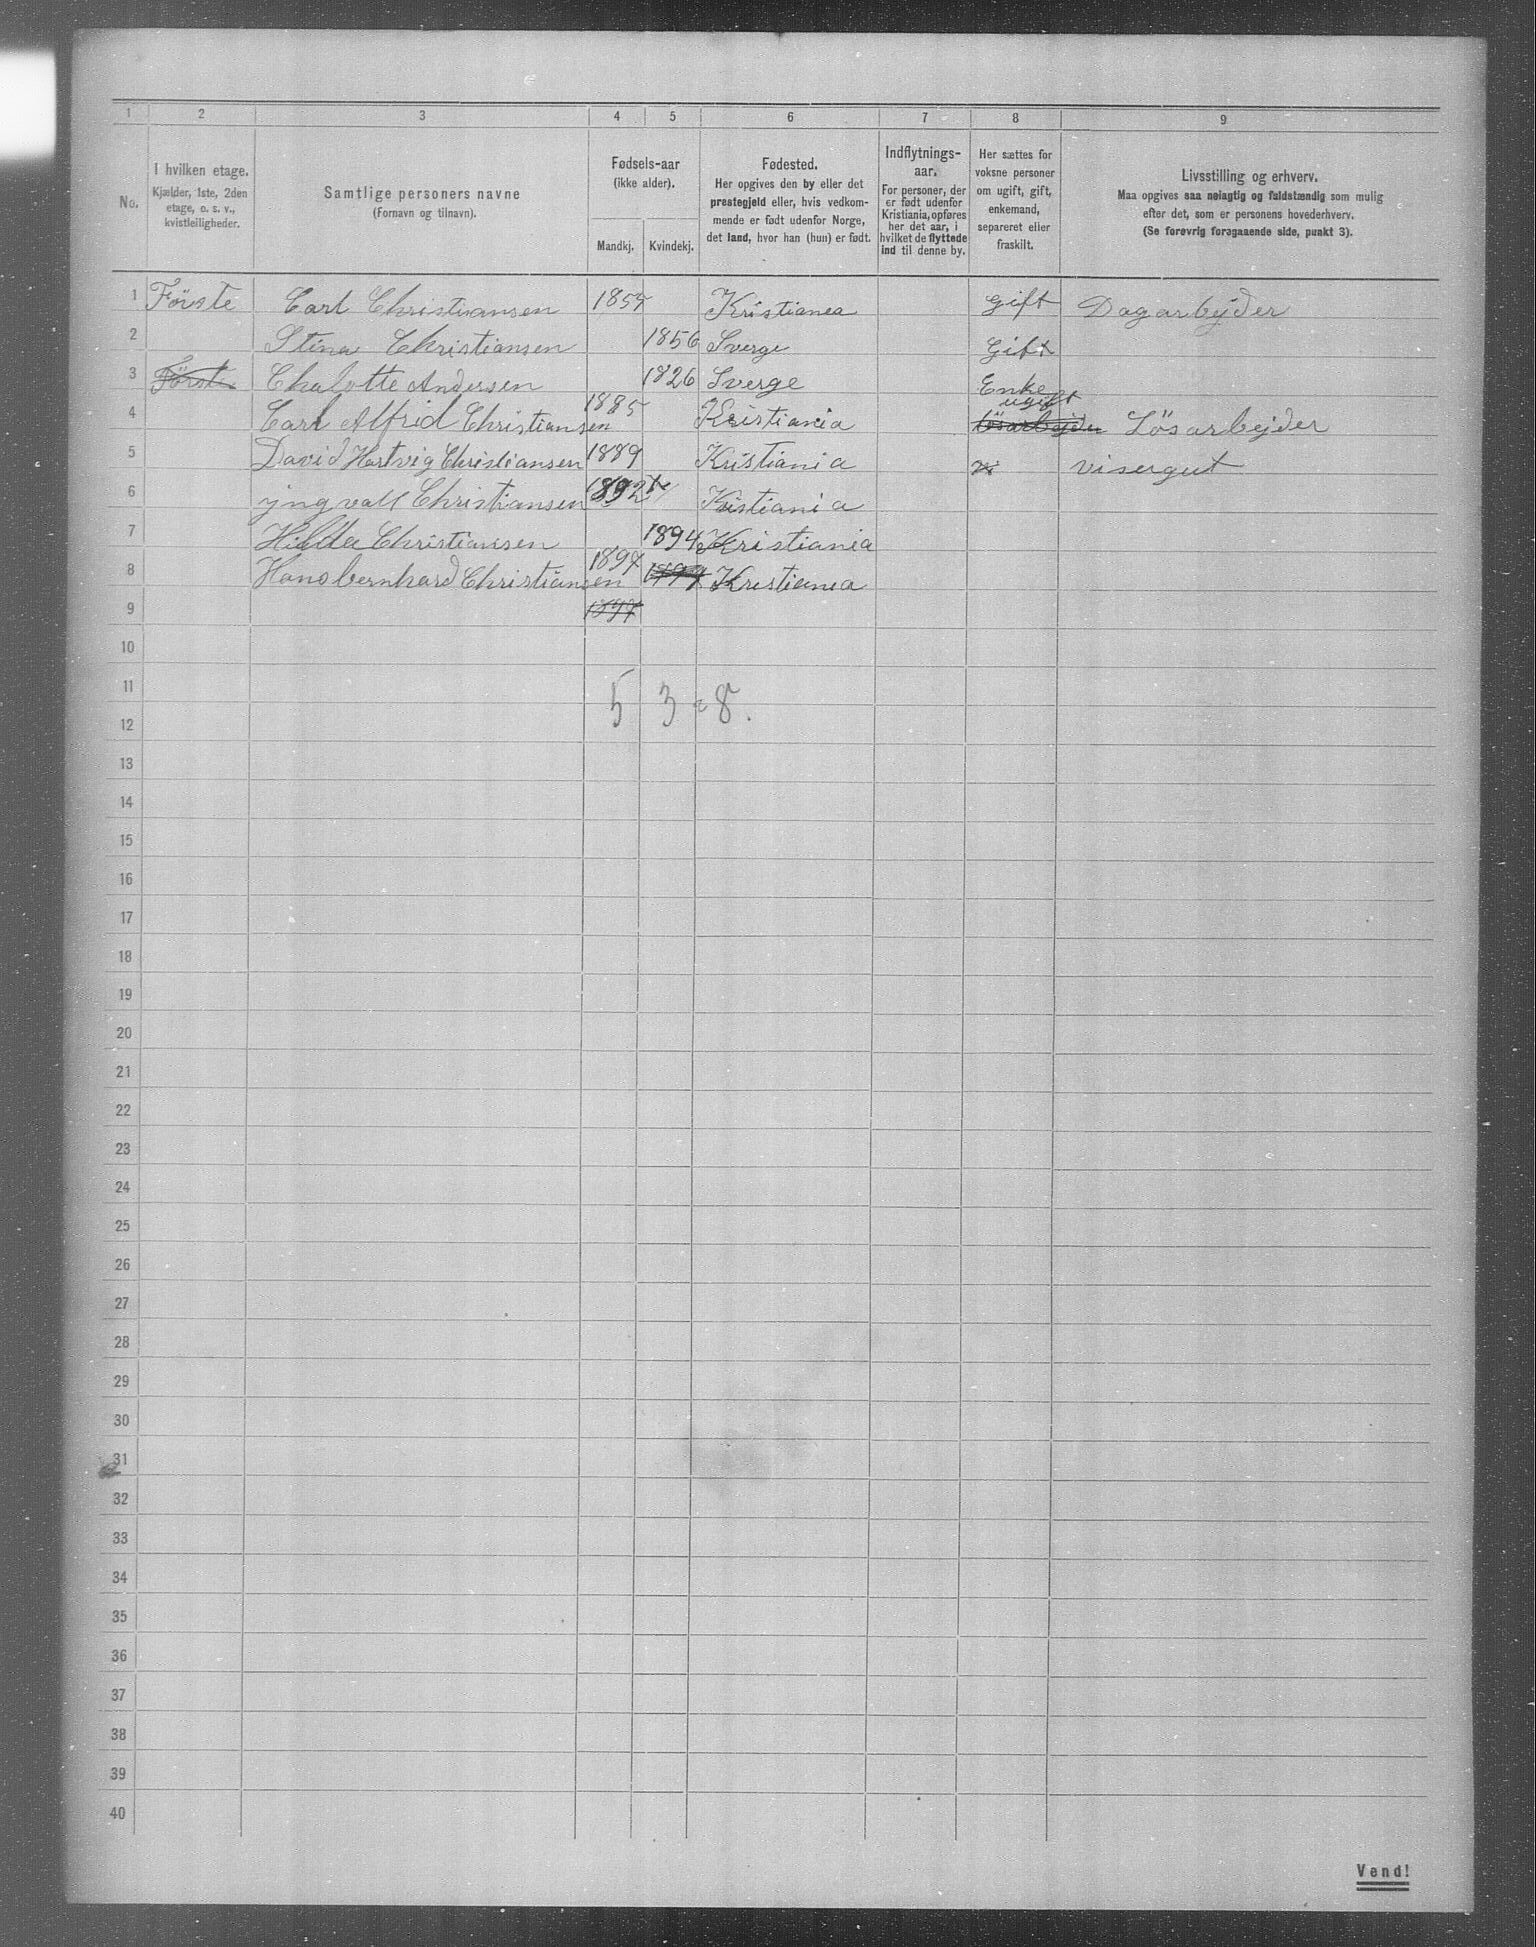 1 2 3 4 5 6 7 8 9
No. I hvilken etage. Kjælder, 1ste, 2den etage, o. s. v., kvistleiligheder. Samtlige personers navne (Fornavn og tilnavn). Fødsels-aar (ikke alder). Mandkj. Kvindekj. Fødested. Her opgives den by eller det prestegjeld eller, hvis vedkommende er født udenfor Norge, det land, hvor han (hun) er født. Indflytnings-aar. For personer, der er født udenfor Kristiania, opføres her det aar, i hvilket de flyttede ind til denne by. Her sættes for voksne personer om ugift, gift, enkemand, separeret eller fraskilt. Livsstilling og erhverv. Maa opgives saa nøiagtig og fuldstændig som mulig efter det, som er personens hovederhverv. (Se forøvrig foregaaende side, punkt 3).
1 Förste Carl Christiansen 1857 Kristianea Gift Dagarbejder
2 Stina Christiansen 1856 Sverge Gift
3 Förste Chalotte Andersen 1826 Sverge Enke
4 Carl Alfrid Christiansen 1885 Kristiania ugift lösarbejder Lösarbejder
5 David Hartvig Christiansen 1889 Kristiania visergut
6 yngvall Christiansen 1892 Kristiania
7 Hilda Christiansen 1894 Kristiania
8 Hans bernhard Christiansen 1897 1897 Kristianea
9 1897
10
11
5 3 = 8.
12
13
14
15
16
17
18
19
20
21
22
23
24
25
26
27
28
29
30
31
32
33
34
35
36
37
38
39
40
Vend!